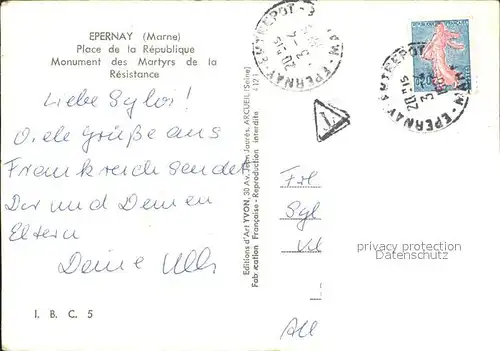 EPERNAY (Marne)
Place de la République
Monument des Martyrs de la
Résistance
Liebe Sylvi!
Viele Grüße aus
Frankreich sendet
Dir und Deinen
Eltern
Deine Ulli
I. B. C. 5
Editions d'Art YVON, 30 Av. Jean Jaurès, ARCUEIL (Seine)
Fabrication Française - Reproduction interdite
EPERNAY-ENTREPOT
20H15
EPERNAY-ENTREPOT
20H15
T
Frl
Syl
All
privacy protection
Datenschutz